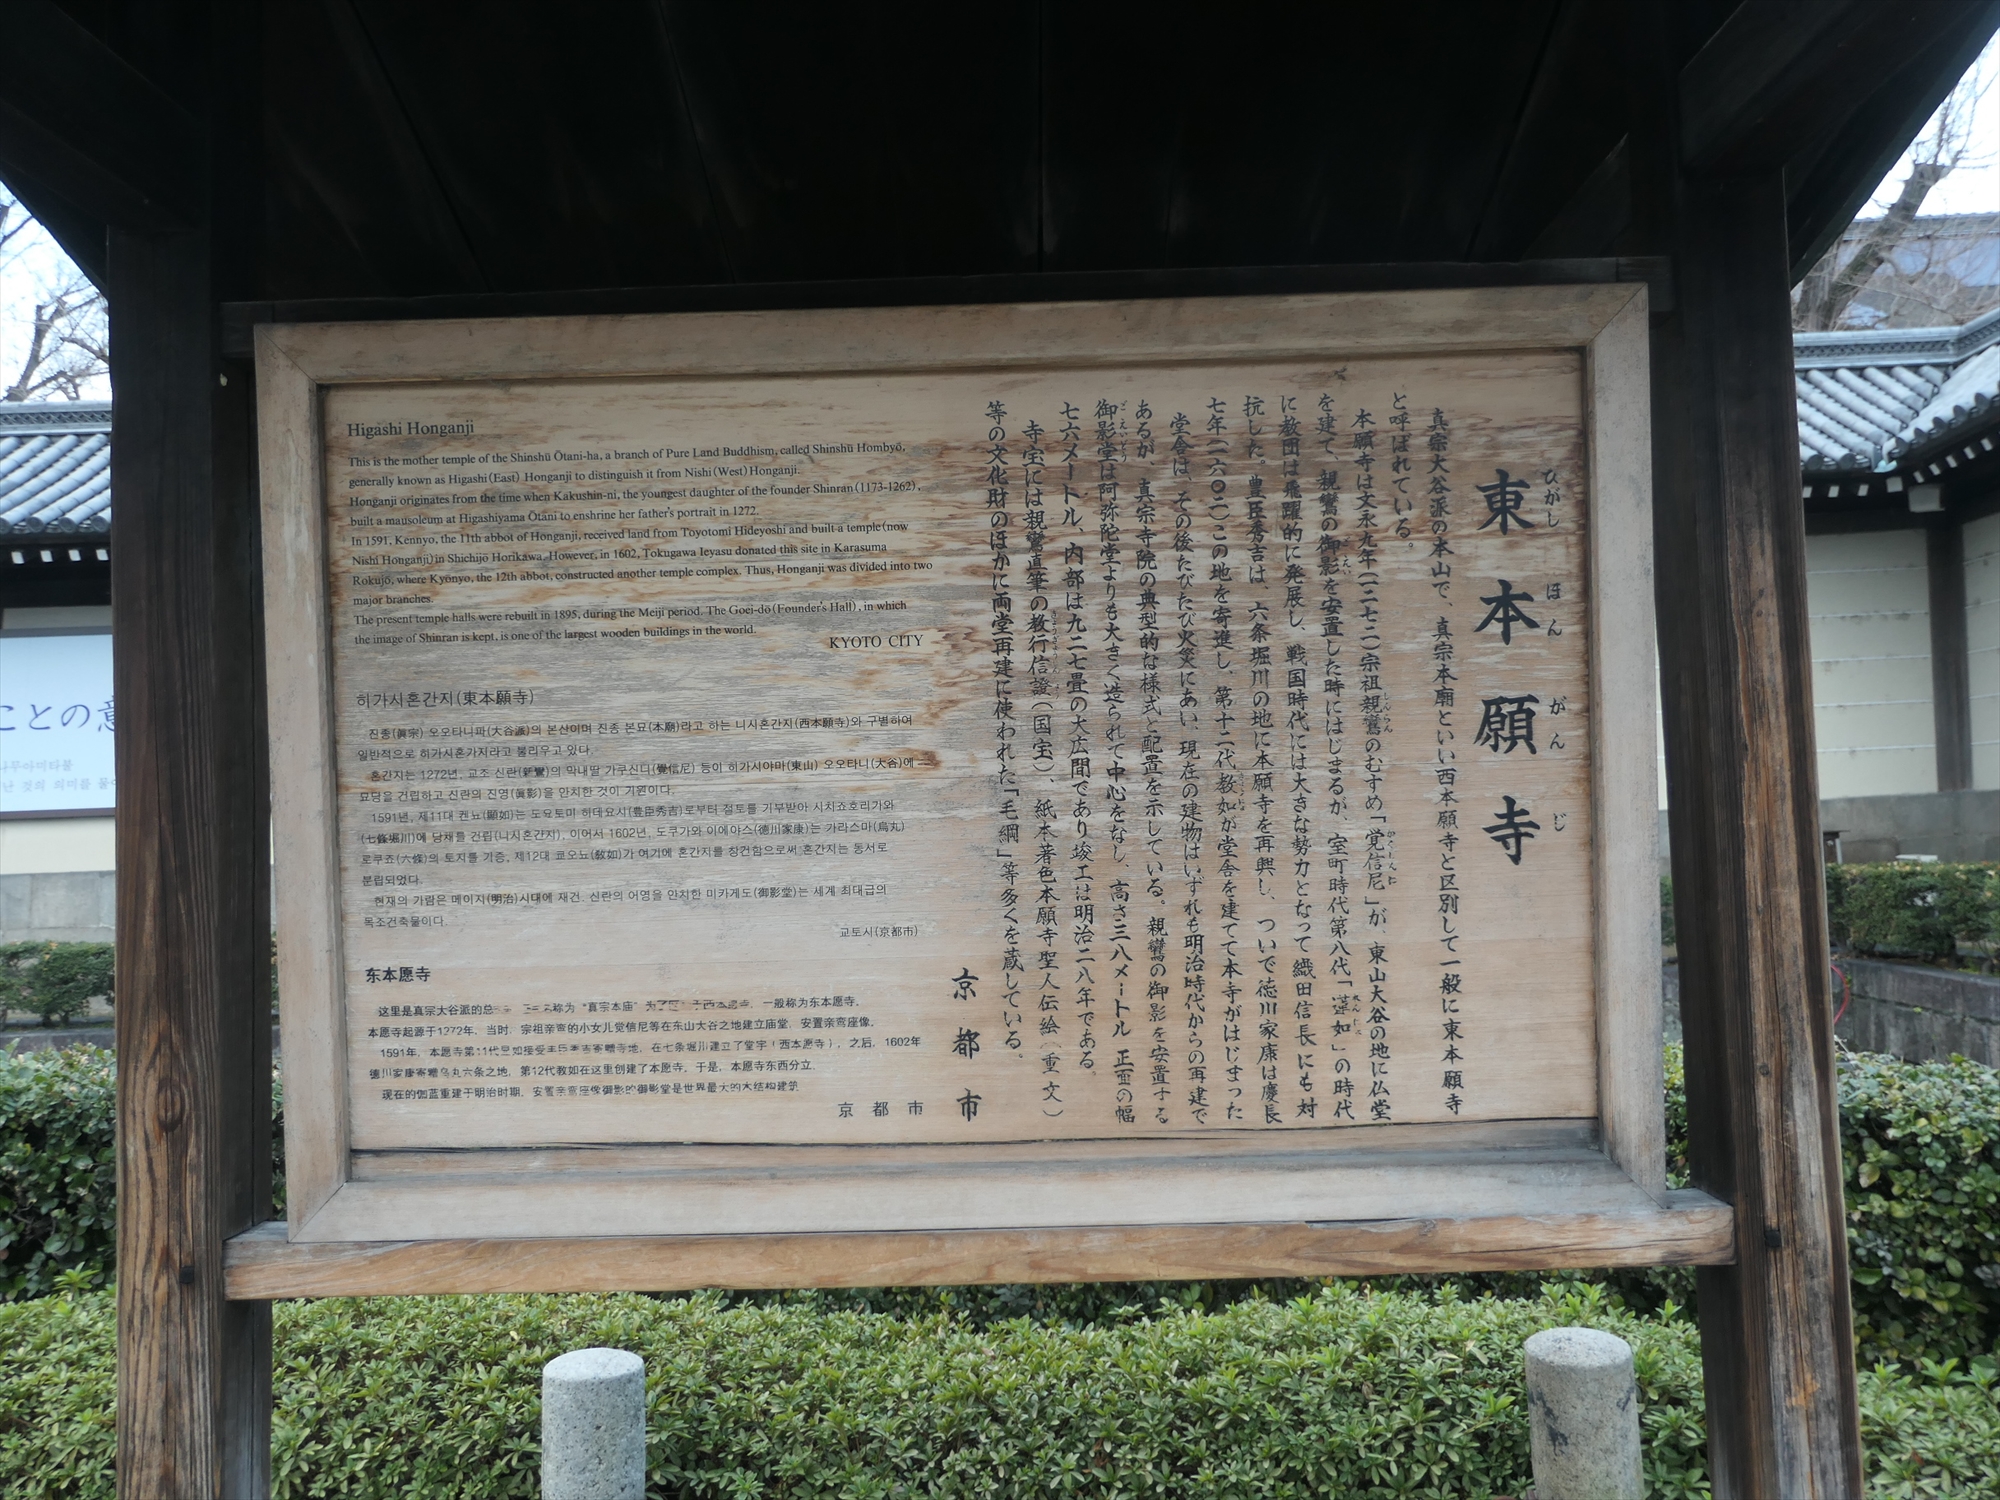 東本願寺
ひがし ほん がん じ
真宗大谷派の本山で、真宗本廟といい西本願寺と区別して一般に東本願寺
と呼ばれている。
本願寺は文永九年(一二七二)宗祖親鸞のむすめ「覚信尼」が、東山大谷の地に仏堂
を建て、親鸞の御影を安置した時にはじまるが、室町時代第八代「蓮如」の時代
に教団は飛躍的に発展し、戦国時代には大きな勢力となって織田信長にも対
抗した。豊臣秀吉は、六条堀川の地に本願寺を再興し、ついで徳川家康は慶長
七年(一六〇二)この地を寄進し、第十二代教如が堂舎を建てて本寺がはじまった
堂舎は、その後たびたび火災にあい、現在の建物はいずれも明治時代からの再建で
あるが、真宗寺院の典型的な様式と配置を示している。親鸞の御影を安置する
御影堂は阿弥陀堂よりも大きく造られて中心をなし、高さ三八メートル 正面の幅
七六メートル、内部は九二七畳の大広間であり竣工は明治二八年である。
寺宝には親鸞直筆の教行信證(国宝)、紙本著色本願寺聖人伝絵(重文)
等の文化財のほかに両堂再建に使われた「毛綱」等多くを蔵している。
京都市
Higashi Honganji
This is the mother temple of the Shinshū Ōtani-ha, a branch of Pure Land Buddhism, called Shinshū Hombyō,
generally known as Higashi(East) Honganji to distinguish it from Nishi(West) Honganji.
Honganji originates from the time when Kakushin-ni, the youngest daughter of the founder Shinran(1173-1262),
built a mausoleum at Higashiyama Ōtani to enshrine her father's portrait in 1272.
In 1591, Kennyo, the 11th abbot of Honganji, received land from Toyotomi Hideyoshi and built a temple(now
Nishi Honganji)in Shichijō Horikawa. However, in 1602, Tokugawa Ieyasu donated this site in Karasuma
Rokujō, where Kyōnyo, the 12th abbot, constructed another temple complex. Thus, Honganji was divided into two
major branches.
The present temple halls were rebuilt in 1895, during the Meiji period. The Goei-dō(Founder's Hall), in which
the image of Shinran is kept, is one of the largest wooden buildings in the world.
KYOTO CITY
히가시혼간지(東本願寺)
진종(眞宗) 오오타니파(大谷派)의 본산이며 진종 본묘(本廟)라고 하는 니시혼간지(西本願寺)와 구별하여
일반적으로 히가시혼가지라고 불리우고 있다.
혼간지는 1272년, 교조 신란(新鸞)의 막내딸 가쿠신니(覺信尼) 등이 히가시야마(東山) 오오타니(大谷)에
묘당을 건립하고 신란의 진영(眞影)을 안치한 것이 기원이다.
1591년, 제11대 켄뇨(顯如)는 도요토미 히데요시(豊臣秀吉)로부터 절토를 기부받아 시치죠호리가와
(七條堀川)에 당채를 건립(니시혼간지), 이어서 1602년, 도쿠가와 이에야스(德川家康)는 가라스마(烏丸)
로쿠죠(六條)의 토지를 기증, 제12대 쿄오뇨(敎如)가 여기에 혼간지를 창건함으로써 혼간지는 동서로
분립되었다.
현재의 가람은 메이지(明治)시대에 재건, 신란의 어영을 안치한 미카게도(御影堂)는 세계 최대급의
목조건축물이다.
교토시(京都市)
东本愿寺
这里是真宗大谷派的总 称为 "真宗本庙" 一般称为东本愿寺。
本愿寺起源于1272年，当时，宗祖亲鸾的小女儿觉信尼等在东山大谷之地建立庙堂，安置亲鸾座像。
1591年，本愿寺第11代显如接受丰臣秀吉寄赠寺地，在七条堀川建立了堂宇（西本愿寺），之后，1602年
德川家康寄赠乌丸六条之地，第12代教如在这里创建了本愿寺，于是，本愿寺东西分立。
现在的伽蓝重建于明治时期，安置亲鸾座像御影的御影堂是世界最大的木结构建筑
京都市
ことの意
나무아미타불
난 것의 의미를